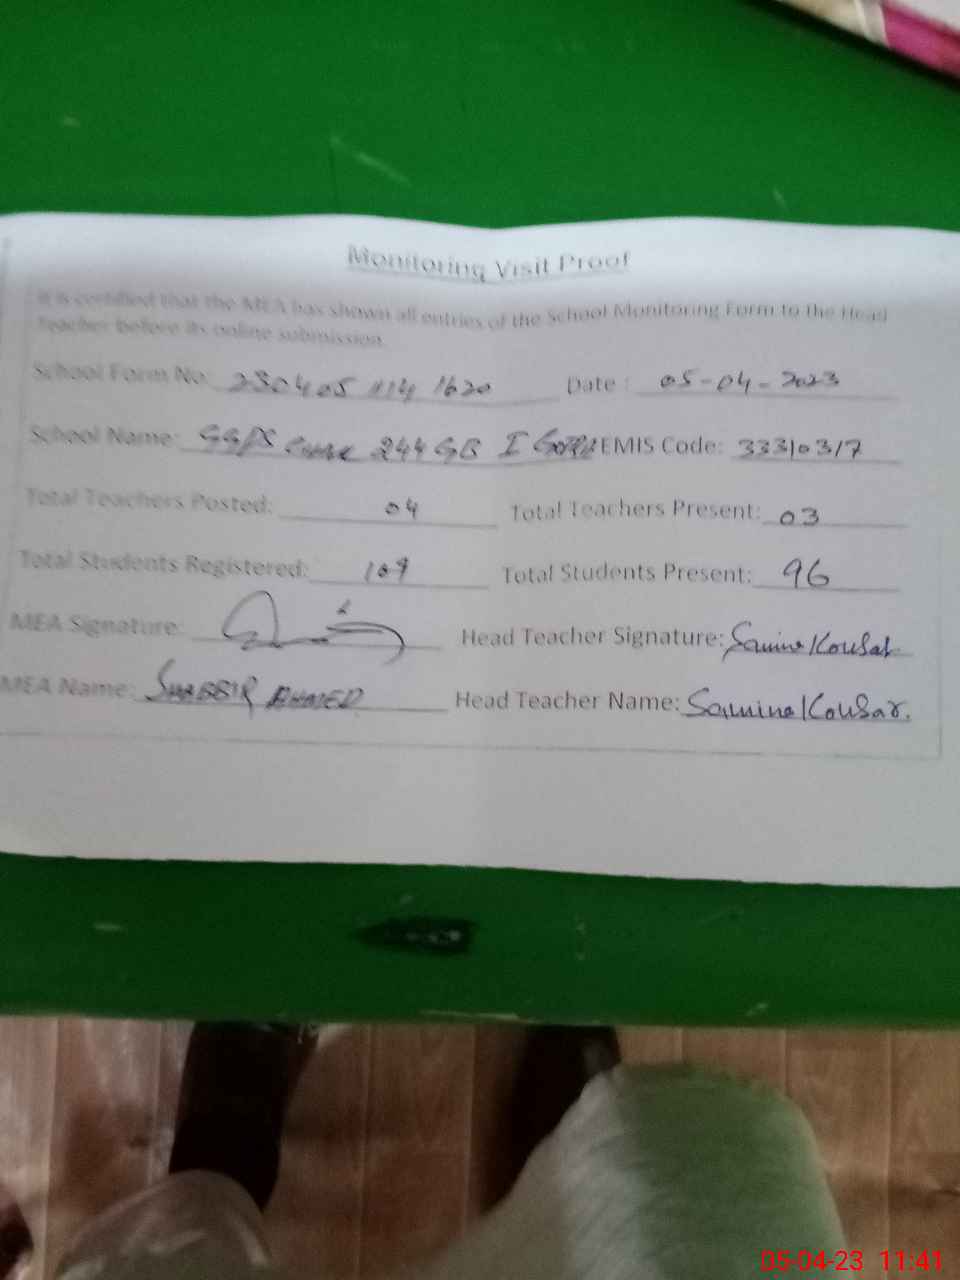 Monitoring Visit Proof
It is certified that the MEA has shown all entries of the School Monitoring Form to the Head
Teacher before its online submission.
School Form No: 230405 1114 1620 Date: 05-04-2023
School Name: GGPS 244 GB I EMIS Code: 33310317
Total Teachers Posted: 04 Total Teachers Present: 03
Total Students Registered: 109 Total Students Present: 96
MEA Signature: Head Teacher Signature: Samina Kousar
MEA Name: SHABBIR AHMED Head Teacher Name: Samina Kousar.
05-04-23 11:41